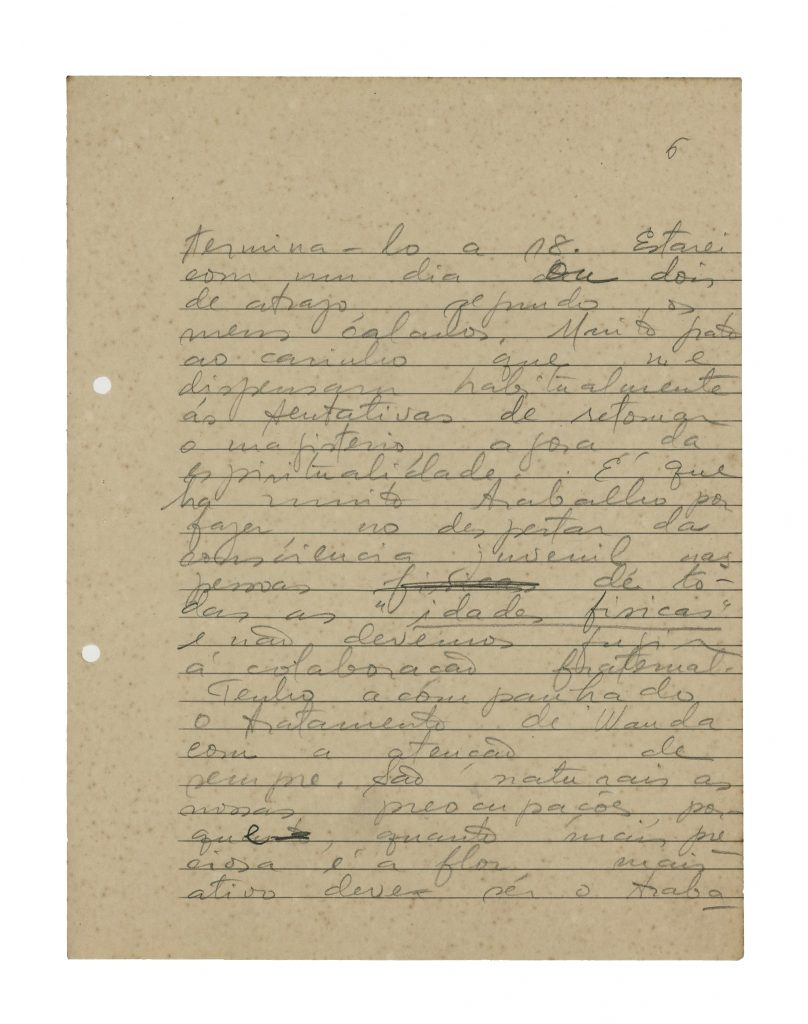 6
termina-lo a 18. Estarei
com um dia ou dois
de atrazo segundo os
meus calculos. Muito grato
ao carinho que me
dispensam habitualmente
ás tentativas de retomar
o magisterio agora da
espiritualidade. É que
ha muito trabalho por
fazer no despertar da
consciencia juvenil nas
pessoas fisicas de to-
das as "idades fisicas"
e não devemos fugir
á colaboração fraternal.
Tenho acompanhado
o tratamento de Wanda
com a atenção de
sempre. São naturais as
nossas preocupações por-
que, quanto mais pre-
ciosa é a flor mais
ativo deve ser o traba